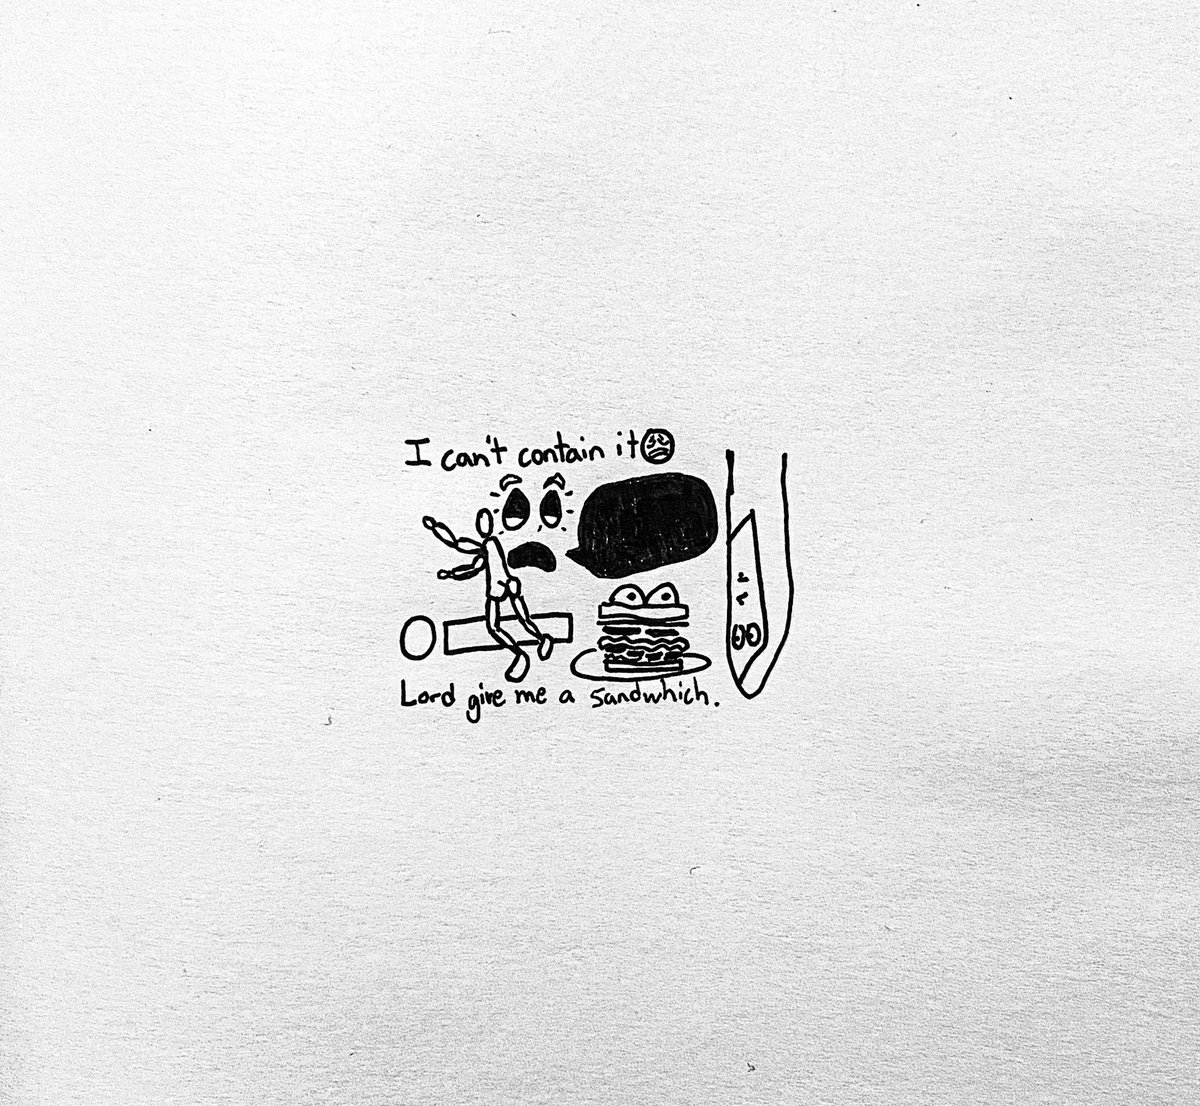 I can't contain it
Lord give me a sandwhich.